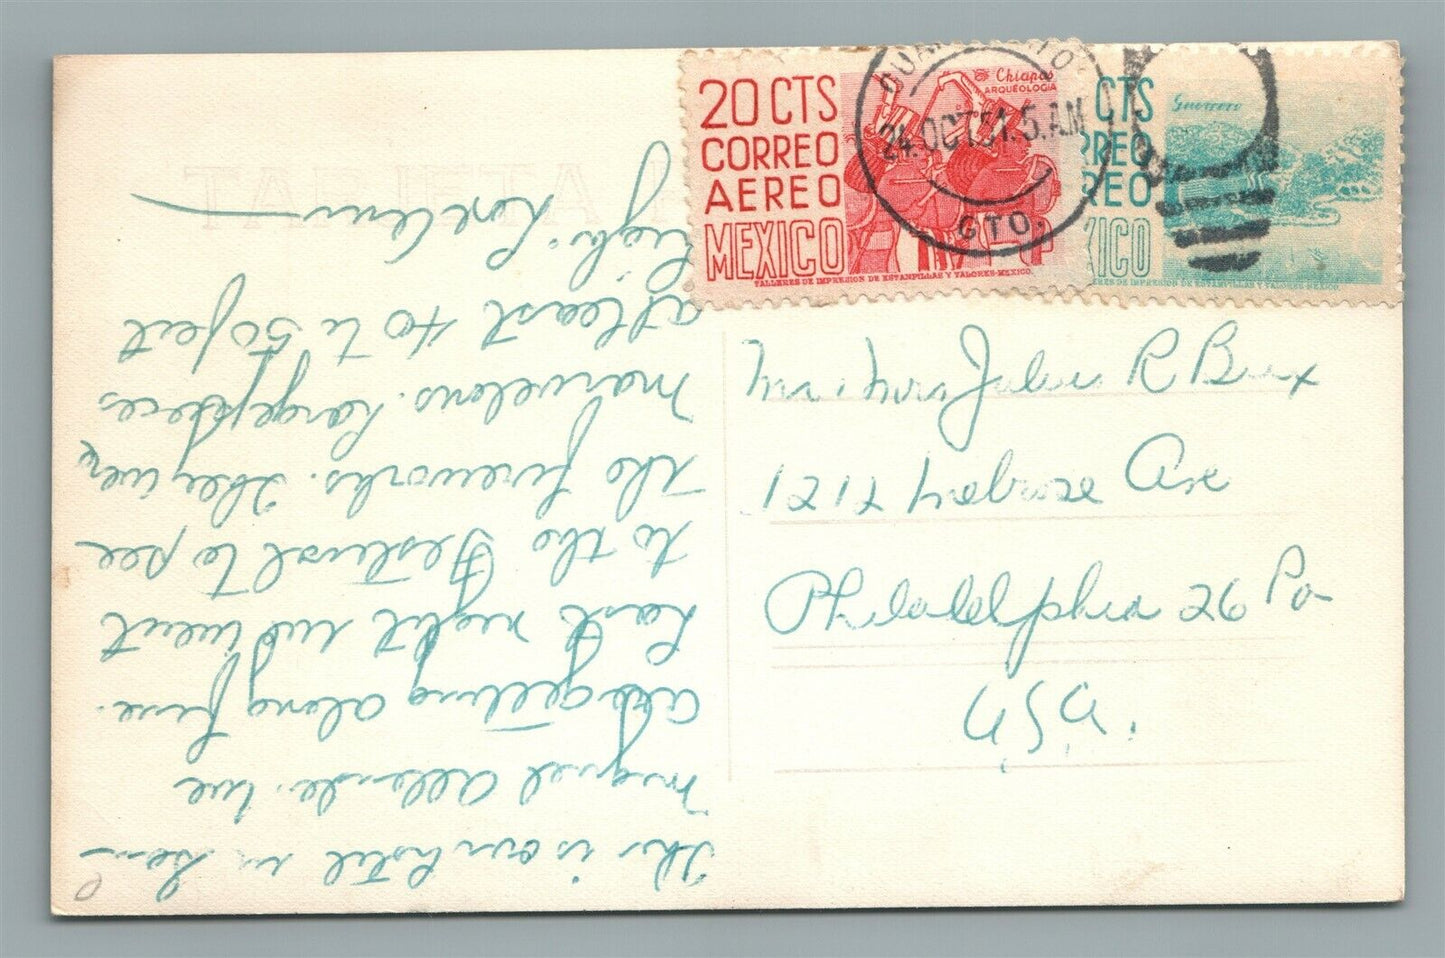 20 CTS
CORREO
AEREO
MEXICO
Chiapas
ARQUEOLOGIA
TALLERES DE IMPRESION DE ESTAMPILLAS Y VALORES-MEXICO.
24.OCT51.5.AM
GTO.
CTS
RREO
REO
XICO
Guerrero
RES DE IMPRESION DE ESTAMPILLAS Y VALORES MEXICO
Mr. Mrs Julius R
1212 Melrose Ave
Philadelphia 26 Pa
USA.
This is our hotel in San
Miguel Allende. We
are getting along fine.
Last night we went
to the Festival to see
the fireworks. They were
marvelous. Large pieces
at least 40 to 50 feet
high.